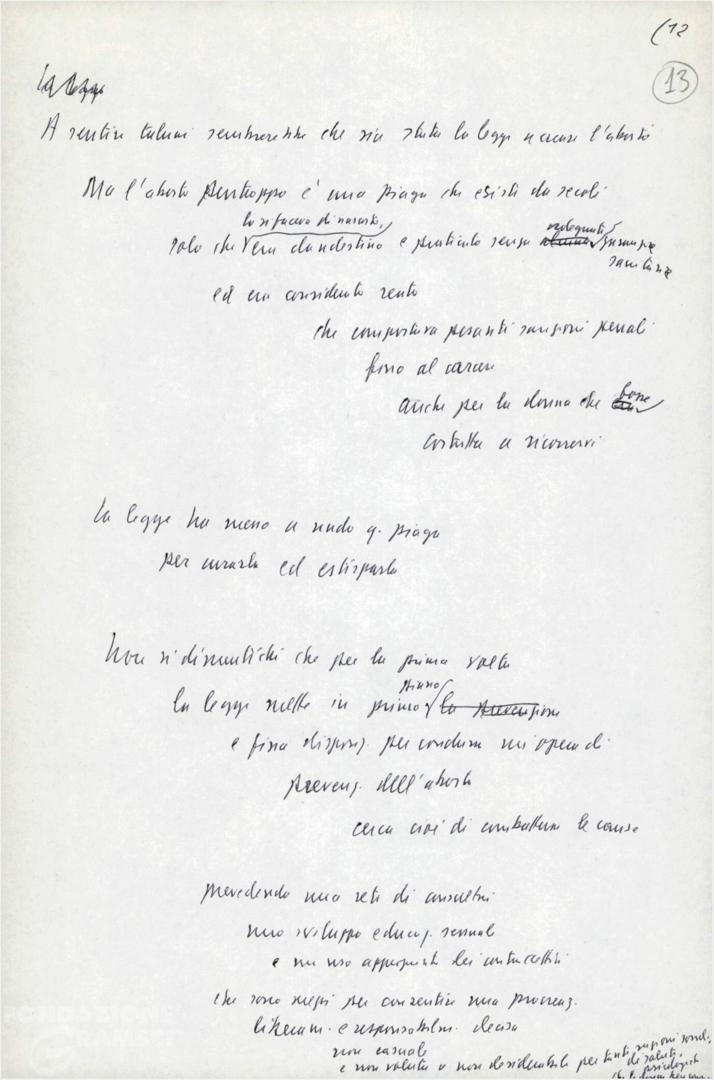 (12
13
La legge
A sentire taluni sembrerebbe che sia stata la legge a creare l'aborto
Ma l'aborto purtroppo è una piaga che esiste da secoli
lo si faceva di nascosto,
solo che era clandestino e praticato senza alcuna adeguate garanzie
sanitarie
ed era considerato reato
che comportava pesanti sanzioni penali
fino al carcere
anche per la donna che era fosse
costretta a ricorrervi
La legge ha messo a nudo q. piaga
per curarla ed estirparla
Non si dimentichi che per la prima volta
la legge mette in primo piano la prevenzione
e fissa disposiz. per condurre un'opera di
prevenz. dell'aborto
cerca cioè di combattere le cause
prevedendo una rete di consultori
uno sviluppo educaz. sessuale
e un uso appropriato dei contraccettivi
che sono mezzi per consentire una procreaz.
liberam. e responsabilm. decisa
non casuale
e non voluta o non desiderabile per tante ragioni sociali,
di salute,
psicologiche